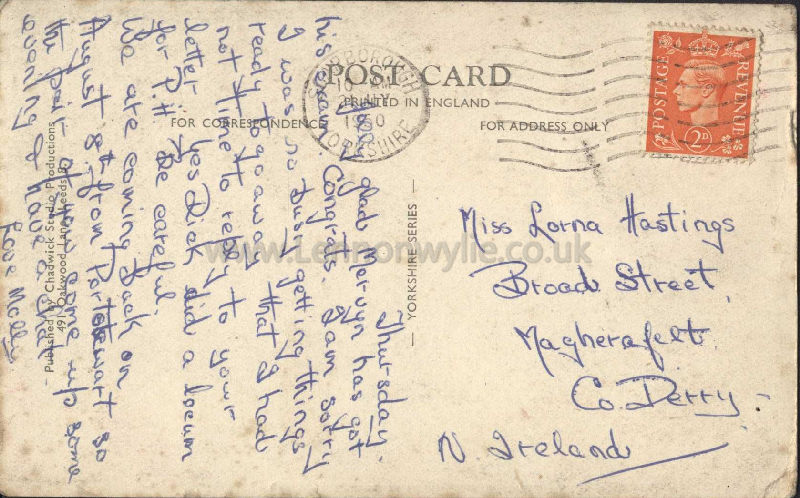 POST CARD
PRINTED IN ENGLAND
FOR CORRESPONDENCE
FOR ADDRESS ONLY
SCARBOROUGH
10
AM
JLY
1950
YORKSHIRE
POSTAGE
REVENUE
2D
Miss Lorna Hastings
Broad Street
Magherafelt
Co. Derry
N. Ireland
Thursday.
glad Mervyn has got
his exam. Congrats. I am sorry
I was so busy getting things
ready to go away that I had
not time to reply to your
letter. Yes Dick did a locum
for P.H. Be careful.
We are coming back on
August 8th from Portstewart so
the pair of you come up some
evening & have a chat
Love Molly
- Published by Chadwick Studio Productions
491, Oakwood Lane, Leeds 8
— YORKSHIRE SERIES —
www.Lennonwylie.co.uk